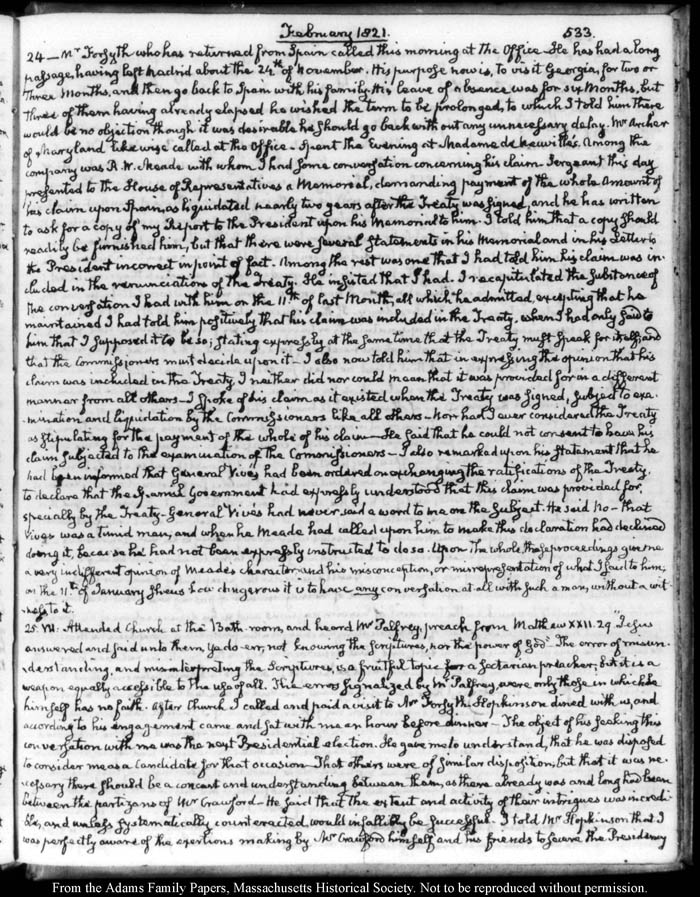 February 1821.
533.
24 — Mr Forsyth who has returned from Spain called this morning at the Office — He has had a long
passage, having left Madrid about the 24th of November. His purpose now is, to visit Georgia, for two or
three Months, and then go back to Spain with his family. His leave of absence was for six Months, but
three of them having already elapsed he wished the term to be prolonged, to which I told him there
would be no objection though it was desirable he should go back without any unnecessary delay. Mr Archer
of Maryland likewise called at the Office — Spent the Evening at Madame de Neuville's. Among the
company was R. W. Meade with whom I had some conversation concerning his claim — Sergeant this day
presented to the House of Representatives a Memorial, demanding payment of the whole Amount of
his claim upon Spain, as liquidated nearly two years after the Treaty was signed, and he has written
to ask for a copy of my Report to the President upon his Memorial to him — I told him that a copy should
readily be furnished him, but that there were several Statements in his Memorial and in his Letter to
the President incorrect in point of fact. Among the rest was one that I had told him his claim was in-
cluded in the renunciations of the Treaty. He insisted that I had. I recapitulated the substance of
the conversation I had with him on the 11th of last Month, all which he admitted, excepting that he
maintained I had told him positively that his claim was included in the Treaty, when I had only said to
him that I supposed it to be so; stating expressly at the same time that the Treaty must speak for itself, and
that the Commissioners must decide upon it — I also now told him that in expressing the opinion that his
claim was included in the Treaty, I neither did nor could mean that it was provided for in a different
manner from all others — I spoke of his claim as it existed when the Treaty was signed, subject to exa-
-mination and liquidation by the Commissioners like all others — Nor had I ever considered the Treaty
as stipulating for the payment of the whole of his claim — He said that he could not consent to have his
claim subjected to the examination of the Commissioners — I also remarked upon his Statement that he
had been informed that General Vives had been ordered on exchanging the ratifications of the Treaty,
to declare that the Spanish Government had expressly understood that this claim was provided for,
specially by the Treaty — General Vives had never said a word to me on the Subject. He said No — that
Vives was a timid man, and when he Meade had called upon him to make this declaration had declined
doing it, because he had not been expressly instructed to do so. Upon the whole these proceedings give me
a very indifferent opinion of Meade's character and his misconception, or misrepresentation of what I said to him,
on the 11th of January shews how dangerous it is to have any conversation at all with such a man, without a wit-
ness to it.
25. VII. Attended Church at the Bath-room, and heard Mr Palfrey, preach from Matthew XXII. 29 "Jesus
answered and said unto them, Ye do err, not knowing the scriptures, nor the power of God". The error of misun-
-derstanding, and misinterpreting the Scriptures, is a fruitful topic for a Sectarian preacher; but it is a
weapon equally accessible to the use of all. The errors signalized by Mr Palfrey, were only those in which he
himself has no faith. After Church I called and paid a visit to Mr Forsyth. Hopkinson dined with us, and
according to his engagement came and sat with me an hour before dinner — The object of his seeking this
conversation with me was the next Presidential election. He gave me to understand, that he was disposed
to consider me as a Candidate for that occasion — That others were of similar disposition, but that it was ne-
cessary there should be a concert and understanding between them, as there already was and long had been
between the partizans of Mr Crawford — He said that the extent and activity of their intrigues was incredi-
ble, and unless systematically counteracted, would infallibly be successful. I told Mr Hopkinson that I
was perfectly aware of the exertions making by Mr Crawford himself and his friends to secure the Presidency
From the Adams Family Papers, Massachusetts Historical Society. Not to be reproduced without permission.